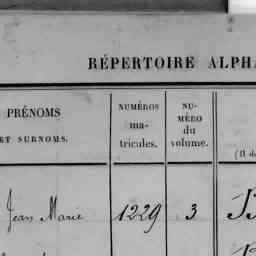 RÉPERTOIRE ALPHA
PRÉNOMS
ET SURNOMS.
NUMÉROS
ma-
tricules.
NU-
MÉRO
du
volume.
(Il d
Jean Marie 1229 3 B